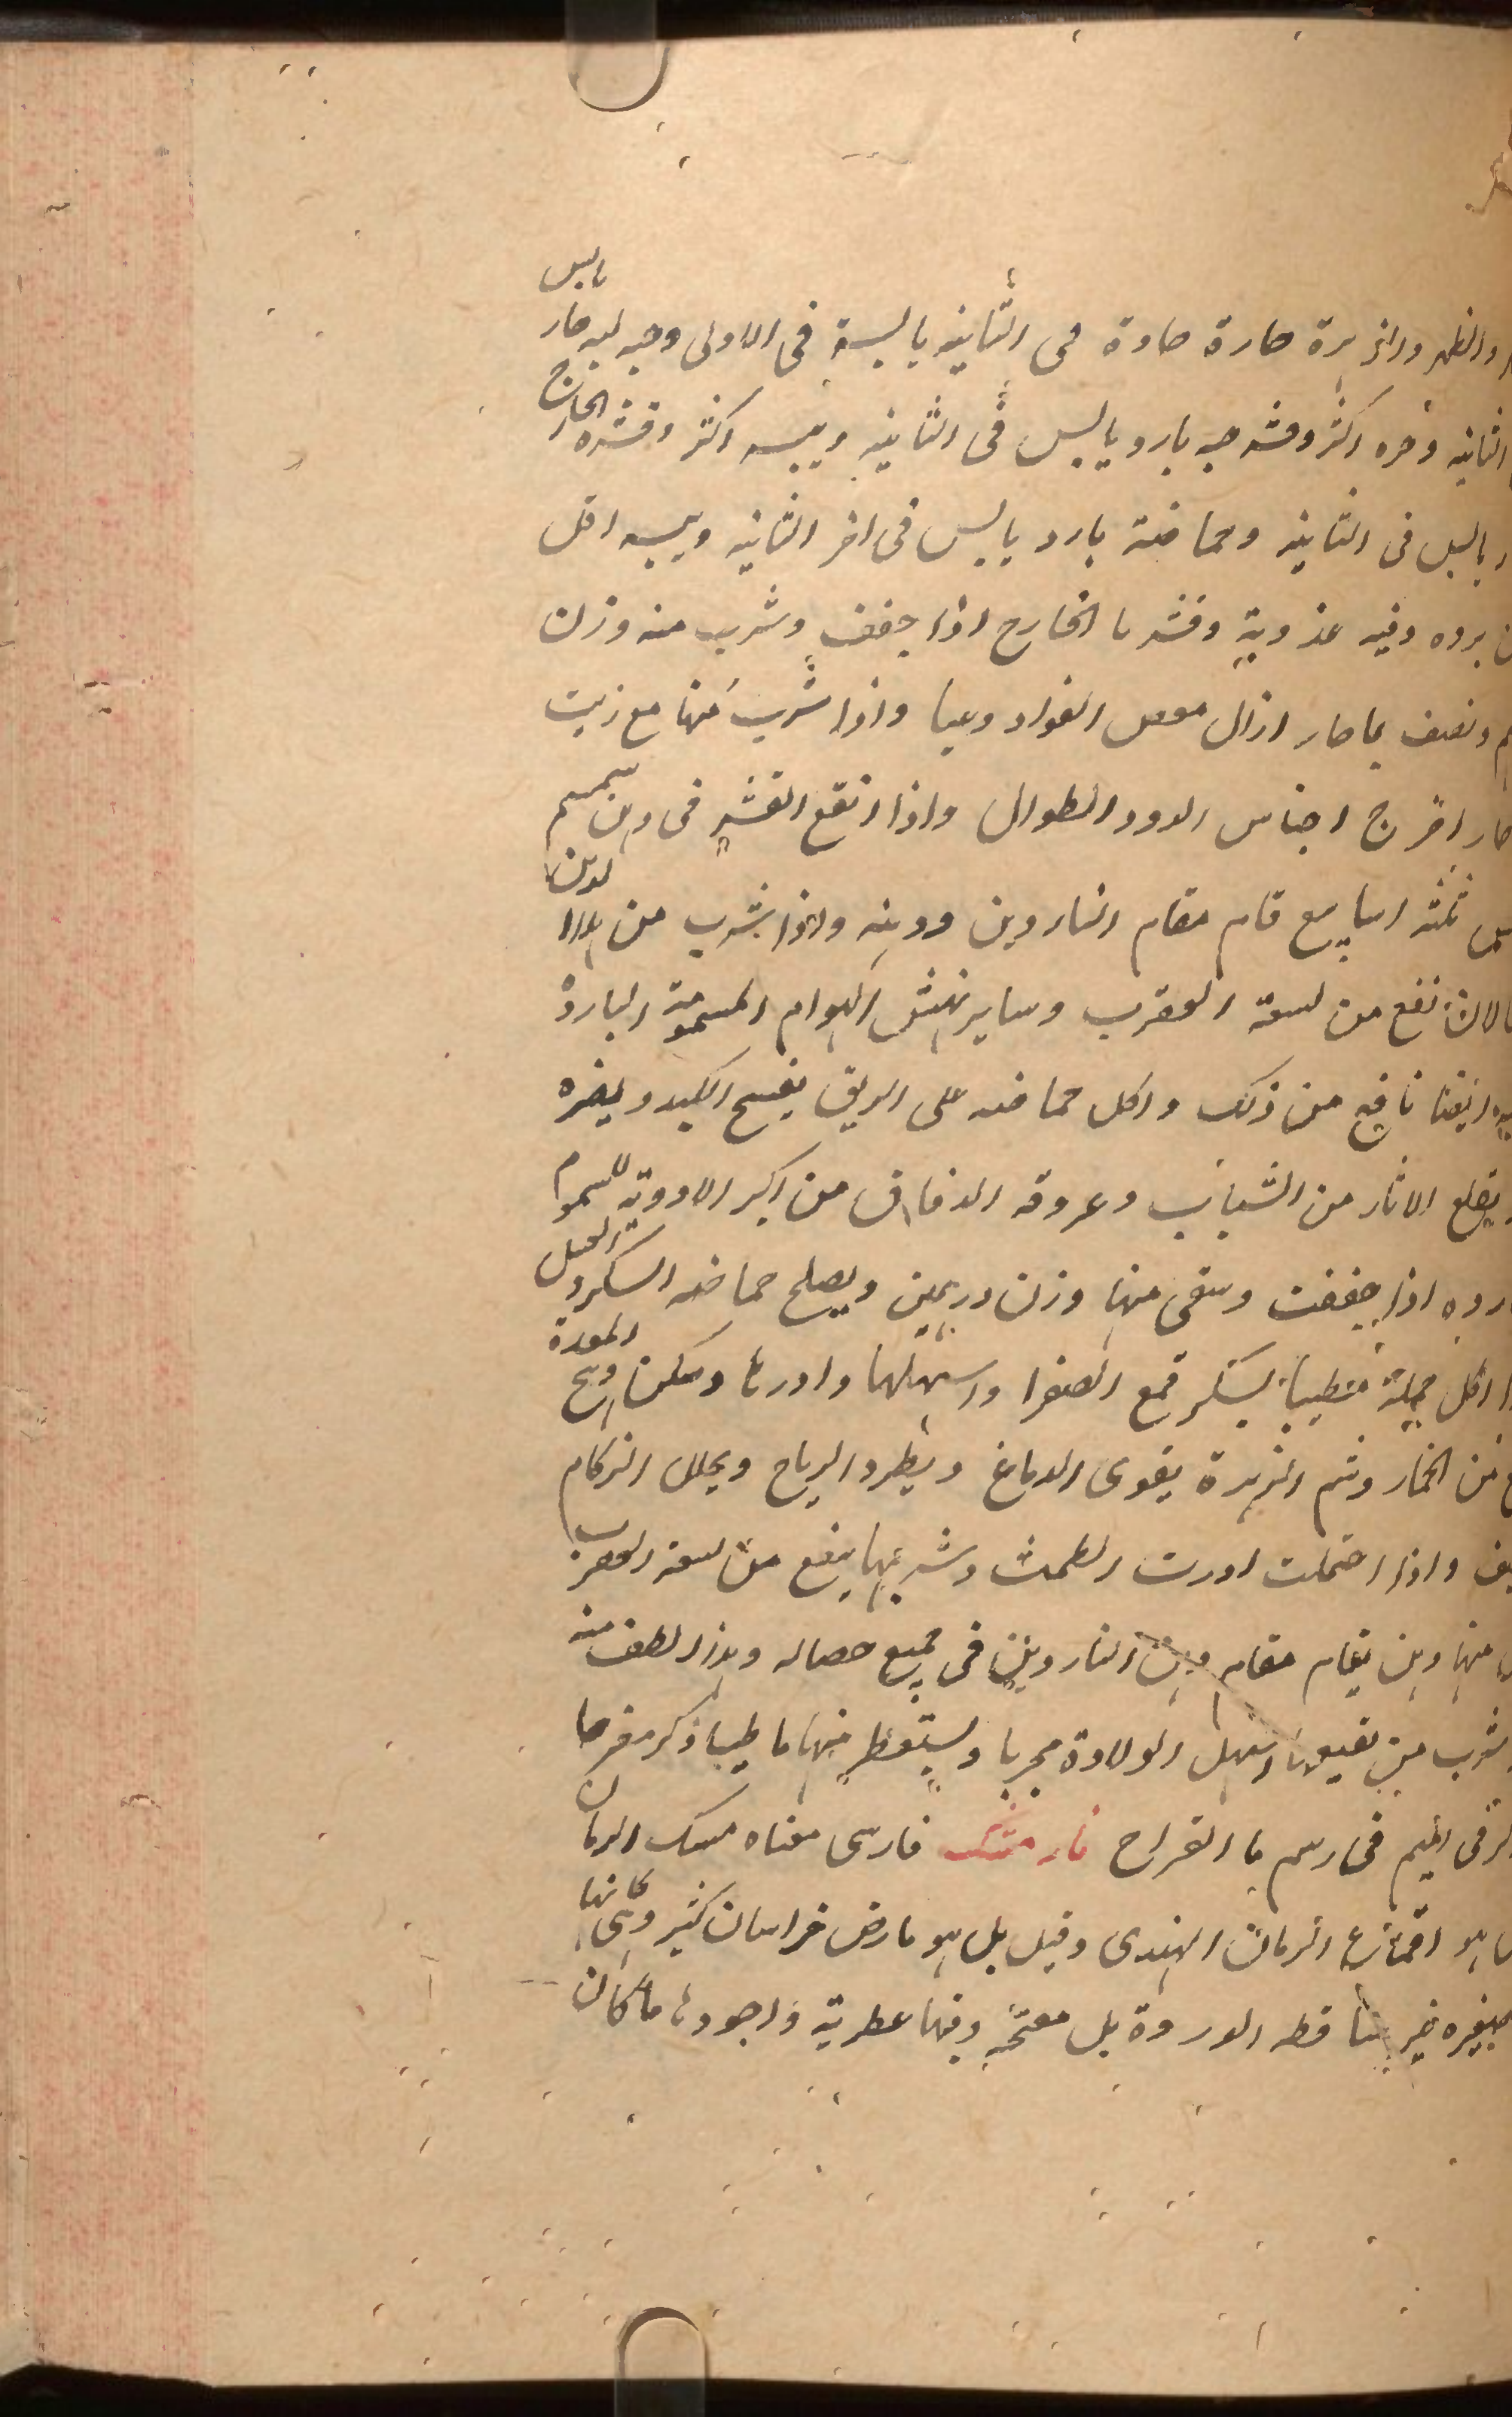 والظهر والزهرة حارة حادة فى الثانية يابسة فى الاولى وحبه لبه حار يابس
الثانية وحره اكثر وقشر حبه بارد يابس فى الثانية ويبسه اكثر وقشره الخارج
يابس فى الثانية وحماضه بارد يابس فى اخر الثانية ويبسه اقل
برده وفيه عذوبة وقشرها الخارج اذا جفف وشرب منه وزن
ونصف بما حار ازال مغص الفواد وحيا واذا شرب منها مع زيت
حار اخرج اجناس الدود الطوال واذا انقع القشر فى دهن سمسم
ثلثة اسابيع قام مقام الناردين ودهنه واذا شرب من هذا الدهن
نفع من لسعة العقرب وساير نهش الهوام المسمومة الباردة
ايضا نافع من ذلك واكل حماضه على الريق يفسح الكبد ويضره
يقلع الاثار من الثياب وعروقه الدقاق من اكبر الادوية للسموم
اذا جففت وسقى منها وزن درهمين ويصلح حماضه السكر والعسل
اكل جملة منطيبا بسكر قمع الصفرا واسهلها وادرها وسكن وهج المعدة
من الخمار وشم الزهرة يقوى الدماغ ويطرد الرياح ويحلل الزكام
واذا احتملت ادرت الطمث وشربها ينفع من لسعة العقرب
منها دهن يقام مقام دهن الناردين فى جميع خصاله وهذا الطف منه
شرب من نقيعها اسهل الولادة مجربا ويستقطر منها ما طيبا ذكر مفرحا
فى الميم فى رسم ما القراح نارمشك فارسى معناه مسك الرمان
هو اقماع الرمان الهندى وقيل بل هو بارض خراسان كثير وهى كانها
صغيره غير ساقطه الوردة بل مفتحة وفيها عطرية واجودها ما كان